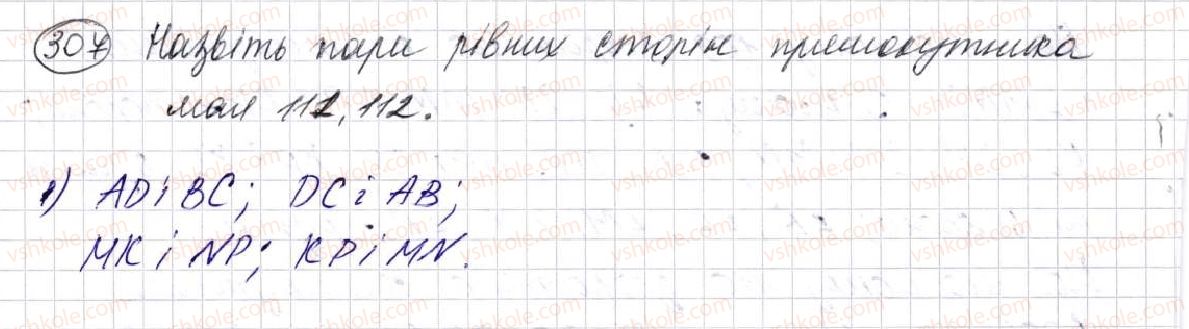 307 Назвіть пари рівних сторін прямокутника
мал 111, 112.
1) AD і BC; DC і AB;
MK і NP; KP і MN.